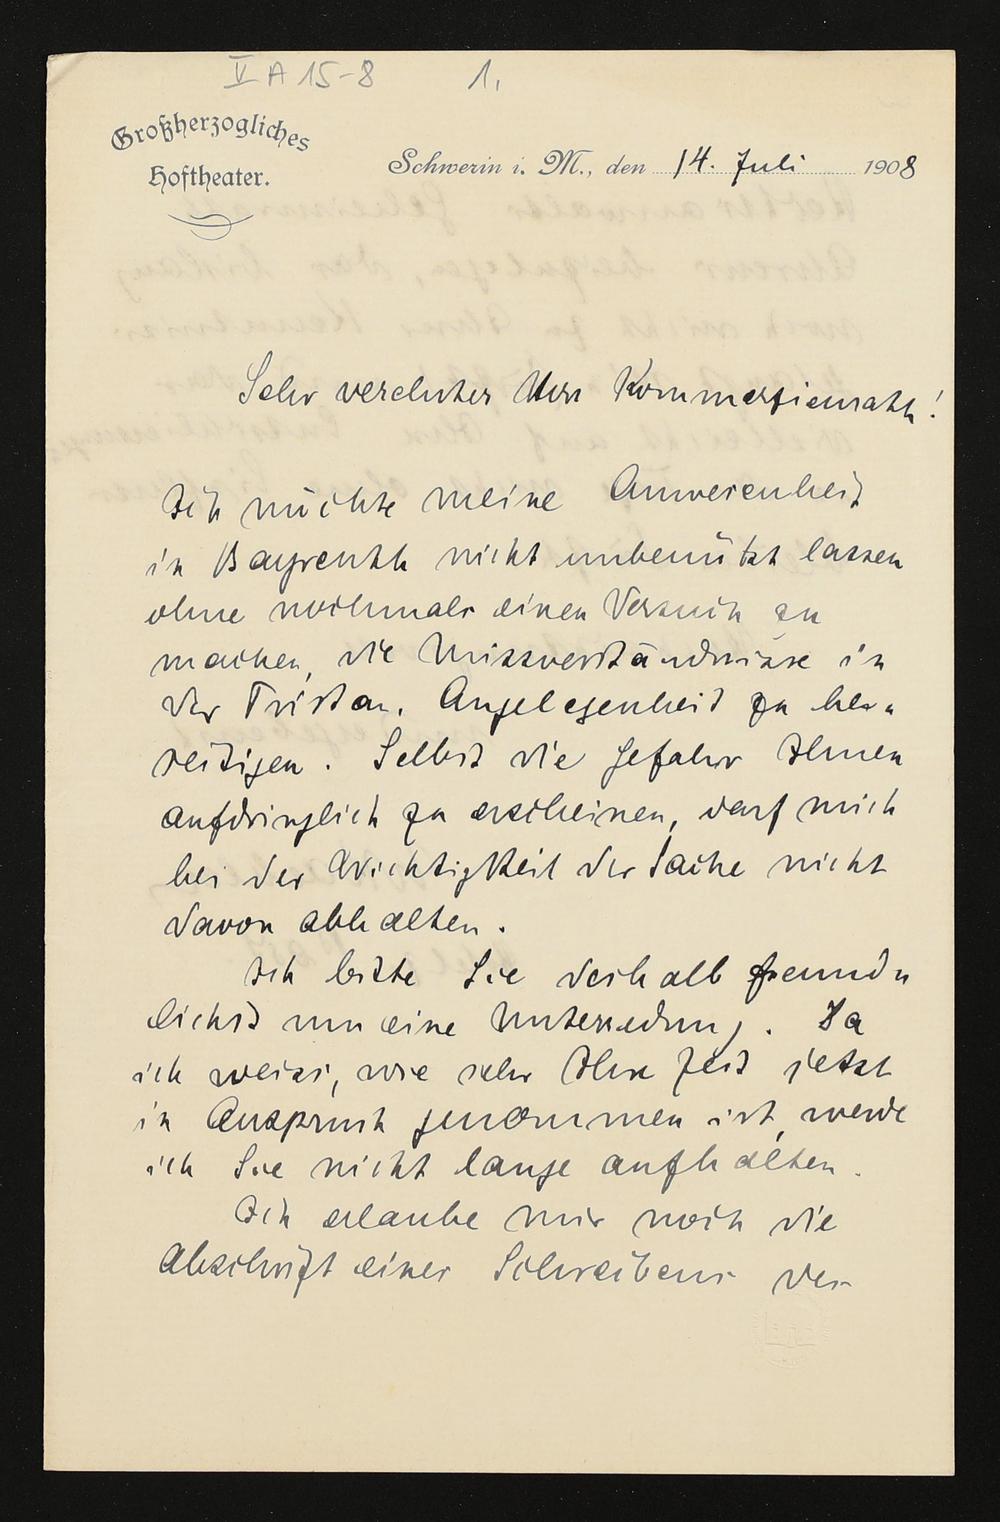 V A 15-8 1.
Großherzogliches
Hoftheater.
Schwerin i. M., den 14. Juli 1908
Sehr verehrter Herr Kommerzienrath!
Ich möchte meine Anwesenheit
in Bayreuth nicht unbenützt lassen
ohne nochmals einen Versuch zu
machen, die Missverständnisse in
der Tristan. Angelegenheit zu be-
seitigen. Selbst die Gefahr Ihnen
aufdringlich zu erscheinen, darf mich
bei der Wichtigkeit der Sache nicht
davon abhalten.
Ich bitte Sie deshalb freund-
lichst um eine Unterredung. Da
ich weiss, wie sehr Ihre Zeit jetzt
in Anspruch genommen ist, werde
ich Sie nicht lange aufhalten.
Ich erlaube mir noch die
Abschrift eines Schreibens des